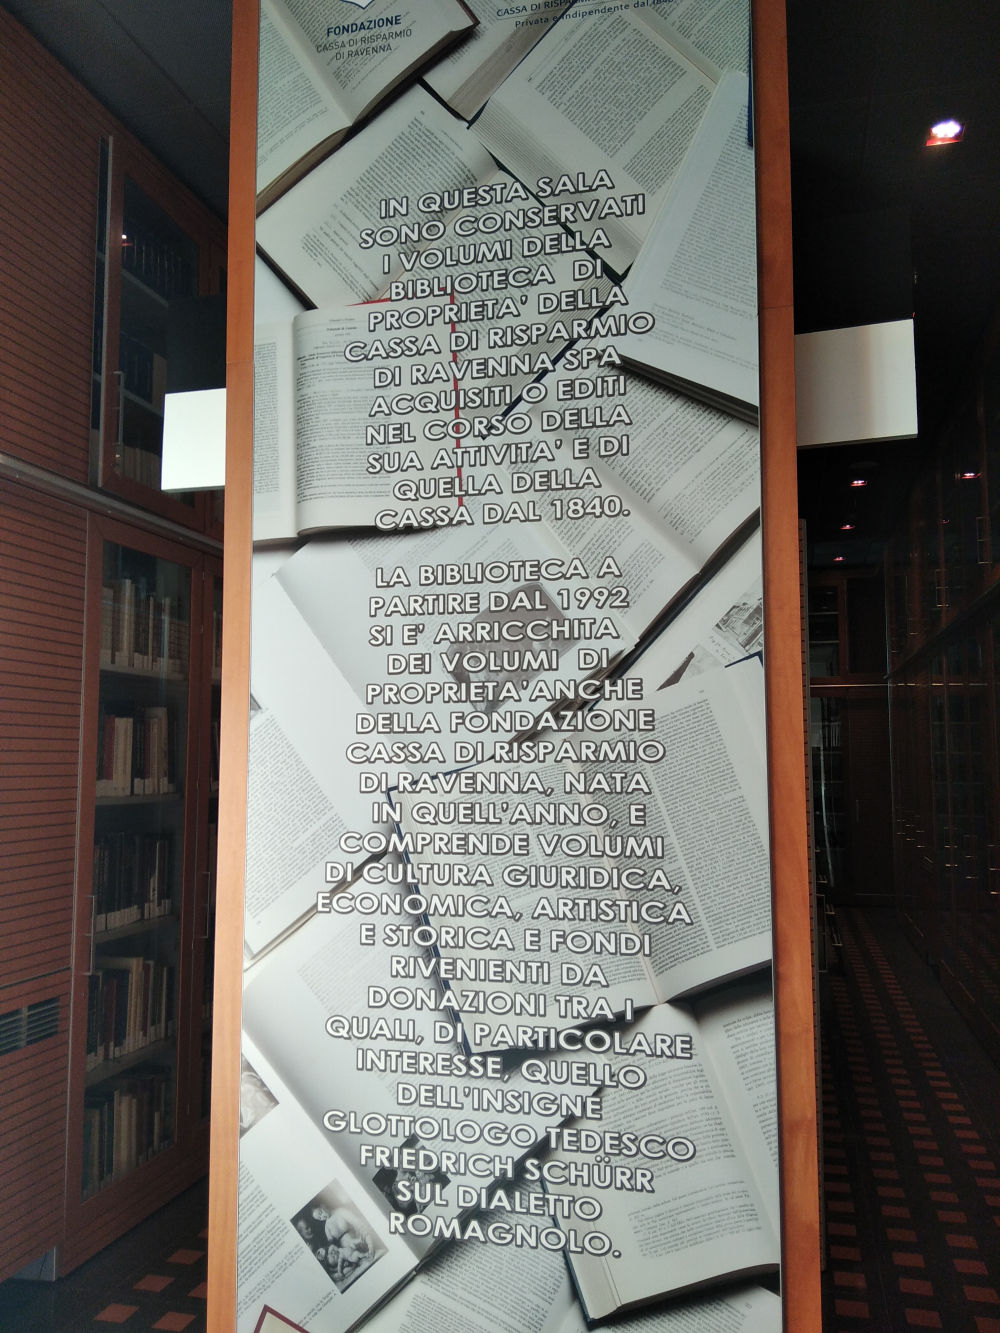 FONDAZIONE
CASSA DI RISPARMIO
DI RAVENNA
CASSA DI
Privata e indipendente dal 1840
IN QUESTA SALA
SONO CONSERVATI
I VOLUMI DELLA
BIBLIOTECA DI
PROPRIETA' DELLA
CASSA DI RISPARMIO
DI RAVENNA SPA
ACQUISITI O EDITI
NEL CORSO DELLA
SUA ATTIVITA' E DI
QUELLA DELLA
CASSA DAL 1840.
LA BIBLIOTECA A
PARTIRE DAL 1992
SI E' ARRICCHITA
DEI VOLUMI DI
PROPRIETA'ANCHE
DELLA FONDAZIONE
CASSA DI RISPARMIO
DI RAVENNA, NATA
IN QUELL'ANNO, E
COMPRENDE VOLUMI
DI CULTURA GIURIDICA,
ECONOMICA, ARTISTICA
E STORICA E FONDI
RIVENIENTI DA
DONAZIONI TRA I
QUALI, DI PARTICOLARE
INTERESSE, QUELLO
DELL'INSIGNE
GLOTTOLOGO TEDESCO
FRIEDRICH SCHÜRR
SUL DIALETTO
ROMAGNOLO.